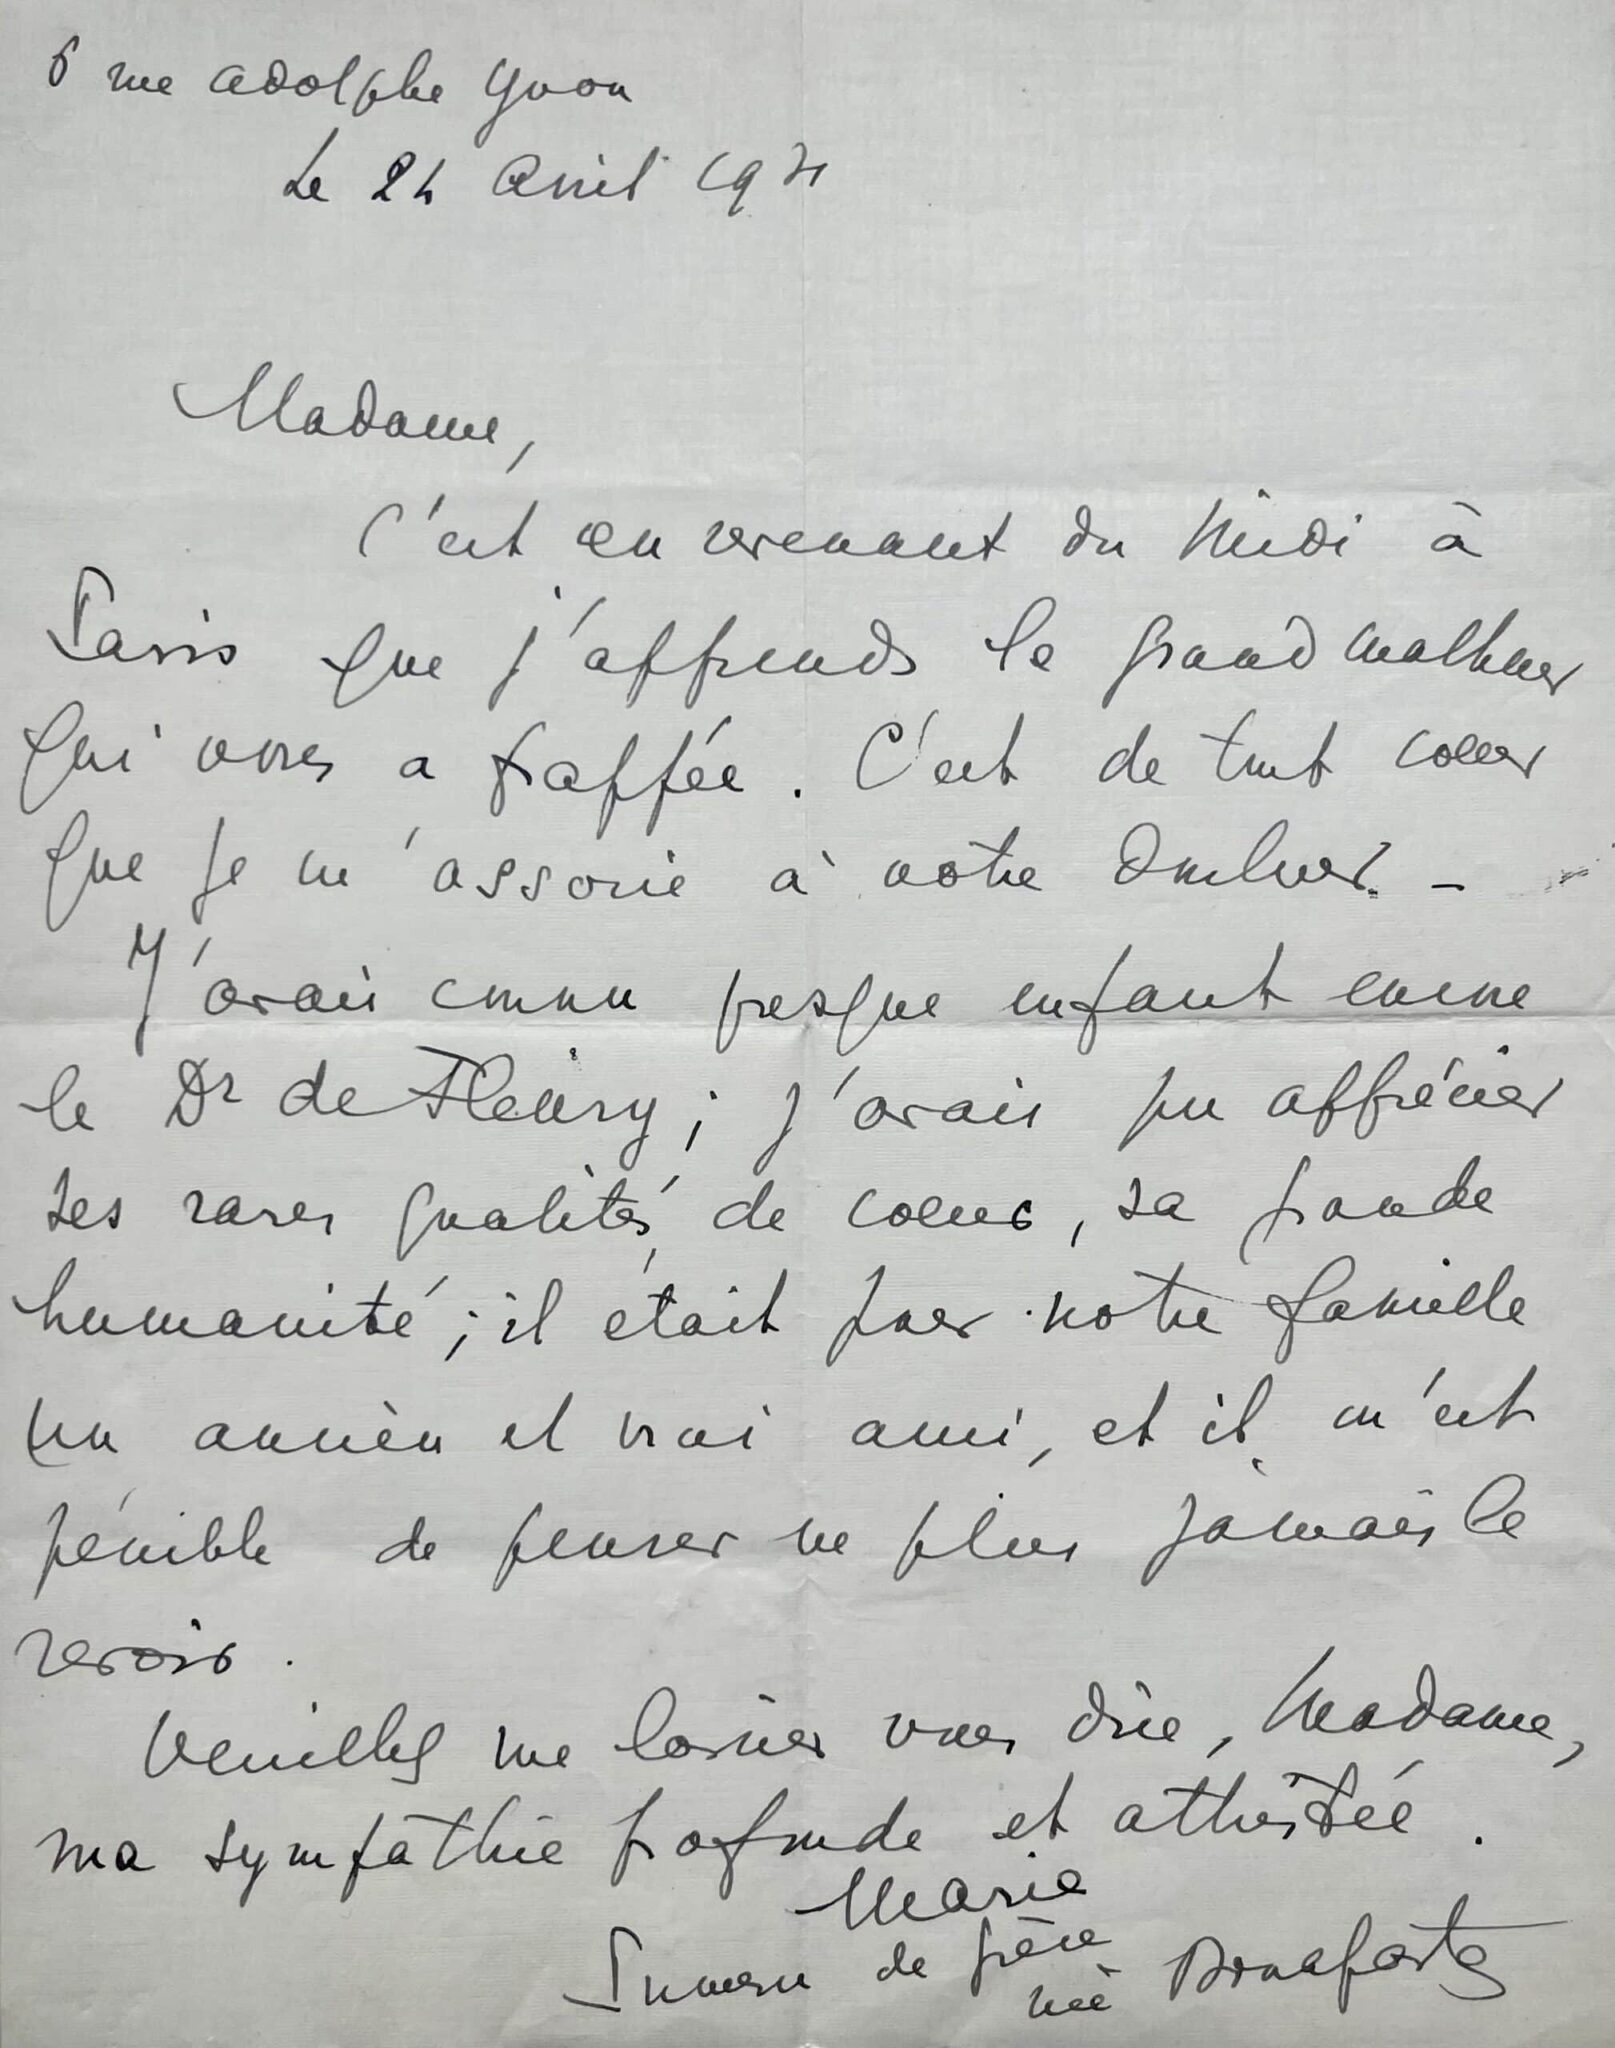 6 rue Adolphe Yvon
Le 24 Avril 1931
Madame,
C'est en revenant du Midi à
Paris que j'apprends le grand malheur
qui vous a frappée. C'est de tout coeur
que je m'associe à votre douleur. -
J'avais connu presque enfant encore
le Dr de Fleury ; j'avais pu apprécier
ses rares qualités de coeur, sa grande
humanité ; il était pour notre famille
un ancien et vrai ami, et il m'est
pénible de penser ne plus jamais le
revoir.
Veuillez me laisser vous dire, Madame,
ma sympathie profonde et attristée.
Marie
Princesse de Grèce
née Bonaparte